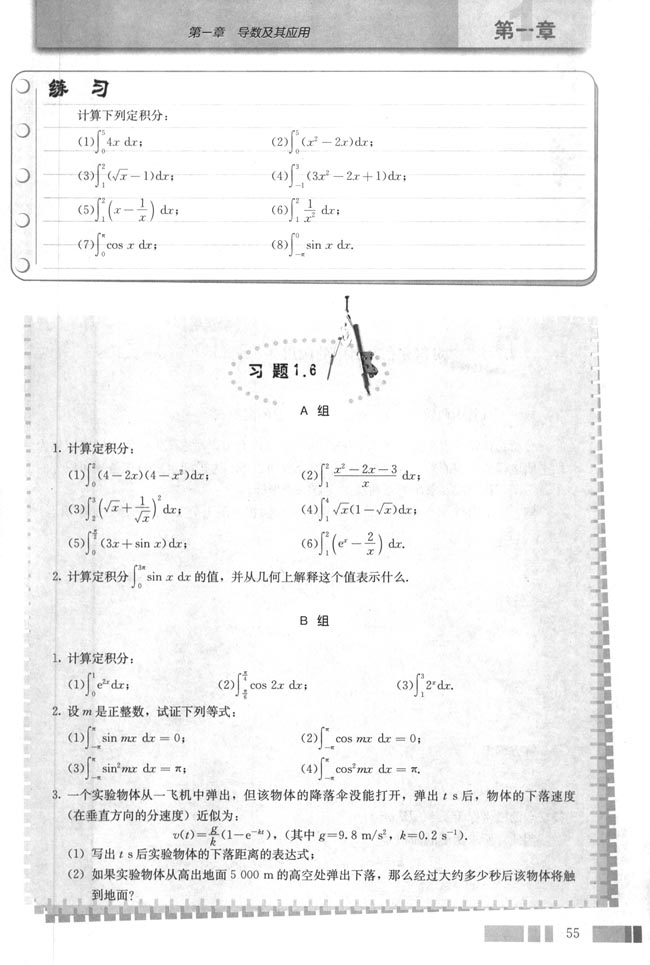 第一章 导数及其应用
第一章
练 习
计算下列定积分:
(1)∫₀⁵ 4x dx; (2)∫₀⁵ (x² − 2x)dx;
(3)∫₁² (√x − 1)dx; (4)∫₋₁³ (3x² − 2x + 1)dx;
(5)∫₁² (x − 1/x) dx; (6)∫₁² 1/x² dx;
(7)∫₀^π cos x dx; (8)∫₋π⁰ sin x dx.
习 题 1.6
A 组
1. 计算定积分:
(1)∫₀² (4 − 2x)(4 − x²)dx; (2)∫₁² (x² − 2x − 3)/x dx;
(3)∫₂³ (√x + 1/√x)² dx; (4)∫₁⁴ √x(1 − √x)dx;
(5)∫₀^(π/2) (3x + sin x)dx; (6)∫₁² (eˣ − 2/x) dx.
2. 计算定积分∫₀^(3π) sin x dx 的值，并从几何上解释这个值表示什么.
B 组
1. 计算定积分:
(1)∫₀¹ e²ˣdx; (2)∫_(π/6)^(π/4) cos 2x dx; (3)∫₁³ 2ˣdx.
2. 设 m 是正整数，试证下列等式:
(1)∫₋π^π sin mx dx = 0; (2)∫₋π^π cos mx dx = 0;
(3)∫₋π^π sin²mx dx = π; (4)∫₋π^π cos²mx dx = π.
3. 一个实验物体从一飞机中弹出，但该物体的降落伞没能打开，弹出 t s 后，物体的下落速度
(在垂直方向的分速度) 近似为:
v(t) = g/k (1 − e^(−kt)), (其中 g=9.8 m/s², k=0.2 s⁻¹).
(1) 写出 t s 后实验物体的下落距离的表达式;
(2) 如果实验物体从高出地面 5 000 m 的高空处弹出下落，那么经过大约多少秒后该物体将触
到地面?
55